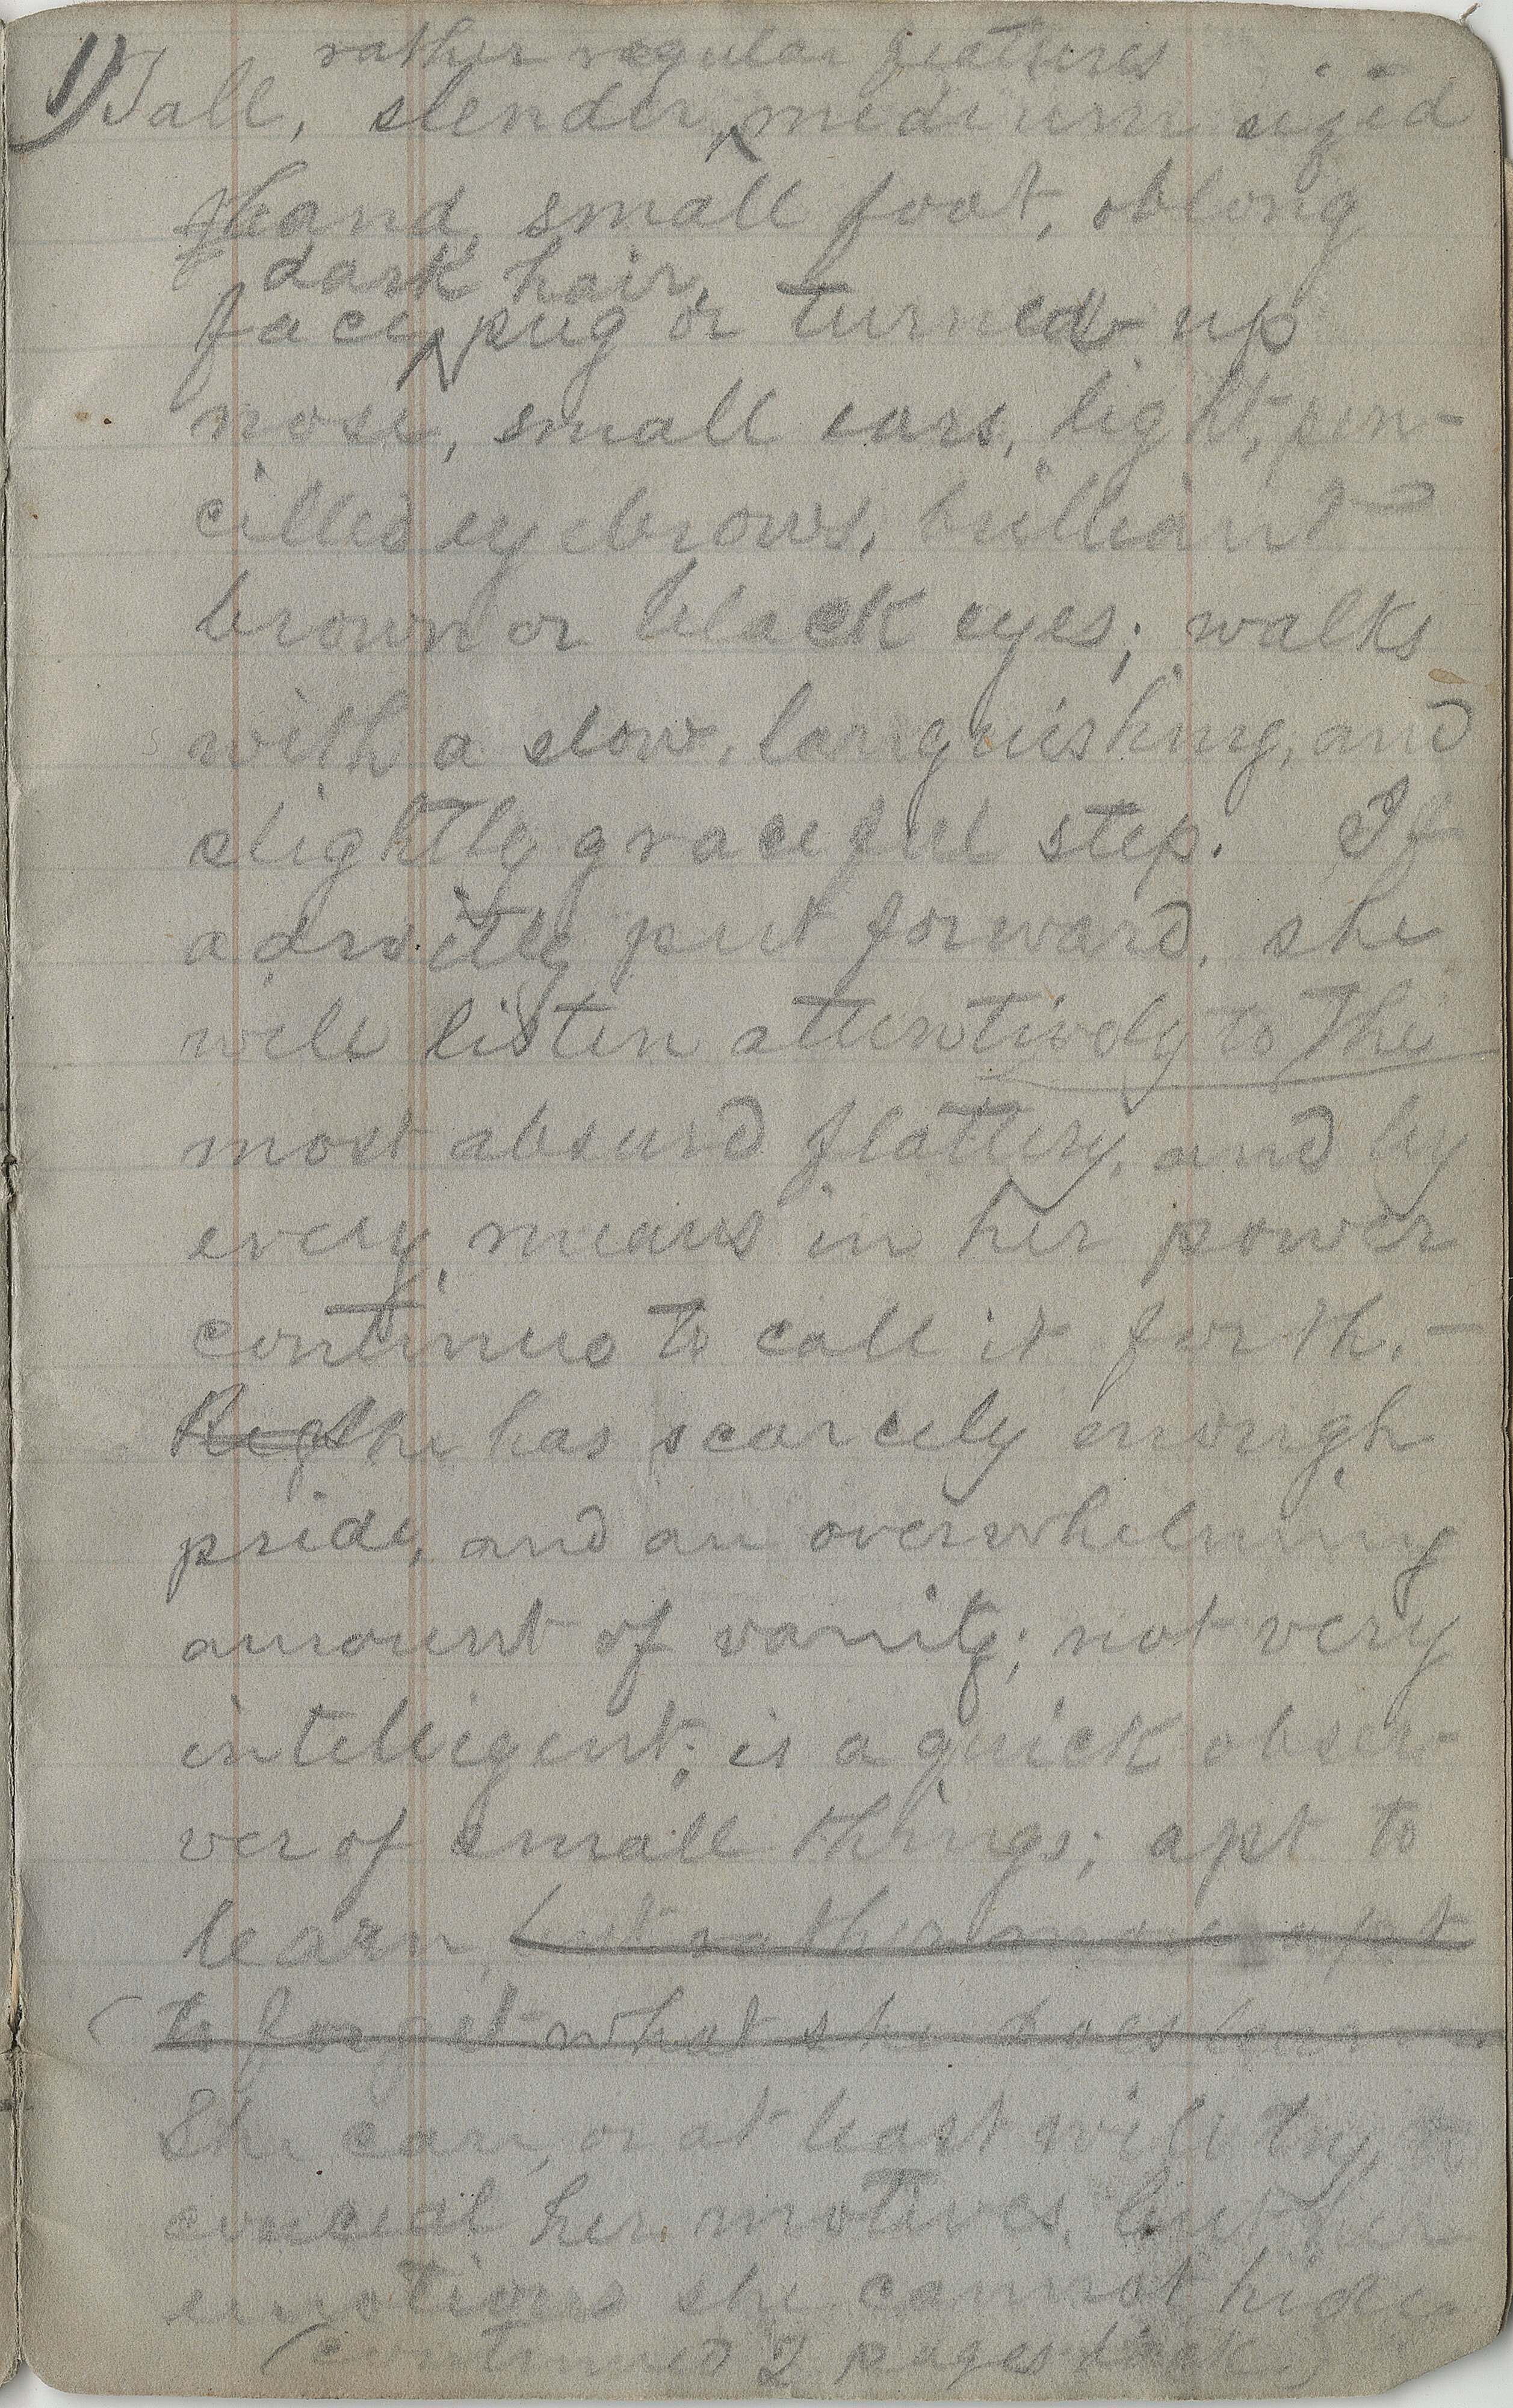 rather regular features
1) Tall, slender, medium sized
hand, small foot, oblong
dark hair,
face, pug or turned up
nose, small ears, light, pen-
cilled eyebrows, brilliant
brown or black eyes; walks
with a slow, languishing, and
slightly graceful step. If
adroitly put forward, she
will listen attentively to the
most absurd flattery, and by
every means in her power
continue to call it forth. —
She has scarcely enough
pride, and an overwhelming
amount of vanity; not very
intelligent; is a quick obser-
ver of small things; apt to
learn, but rather more apt
to forget what she does learn
She can, or at least will try, to
conceal her motives, but her
emotions she cannot hide
(continued 2 pages back)